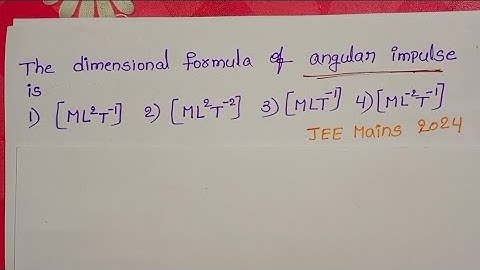 The dimensional formula of angular impulse
is
1) [ML²T⁻¹] 2) [ML²T⁻²] 3) [MLT⁻¹] 4) [ML⁻²T⁻¹]
JEE Mains 2024